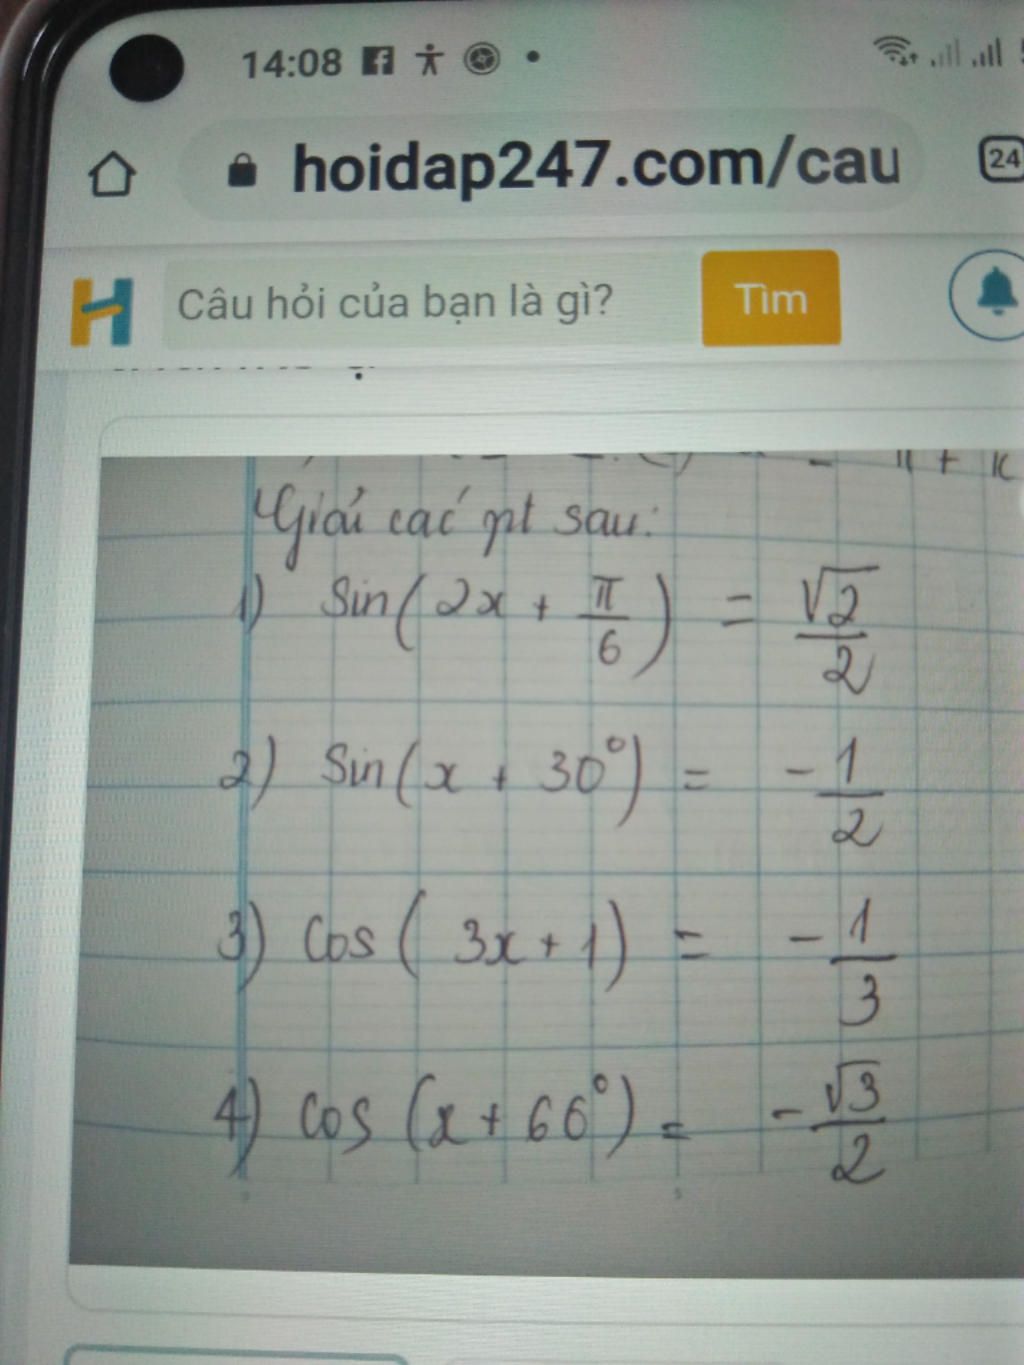 14:08
hoidap247.com/cau
24
Câu hỏi của bạn là gì?
Tìm
Giải các pt sau:
1) Sin(2x + π/6) = √2/2
2) Sin(x + 30°) = -1/2
3) Cos(3x + 1) = -1/3
4) Cos(x + 66°) = -√3/2